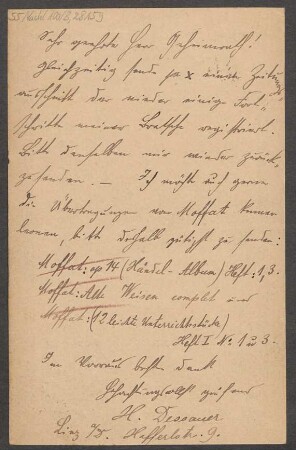 Sehr geehrter Herr Geheimrath!
Gleichzeitig sende ja x einen Zeitungs-
ausschnitt der wieder einige Fort-
schritte meiner Bratsche registriert.
Bitte denselben mir wieder zurück-
zusenden. — Ich möchte auch gerne
die Übertragungen von Moffat kennen
lernen, bitte deshalb gütigst zu senden:
Moffat: op 14 (Händel-Album) Heft: 1, 3.
Moffat: Alte Weisen complet und
Moffat: (12 leichte Unterrichtsstücke)
Heft I No 1 u 3.
Im Voraus besten Dank
Hochachtungsvollst grüßend
H. Dessauer.
Linz a/D. Hafferlstr. 9.